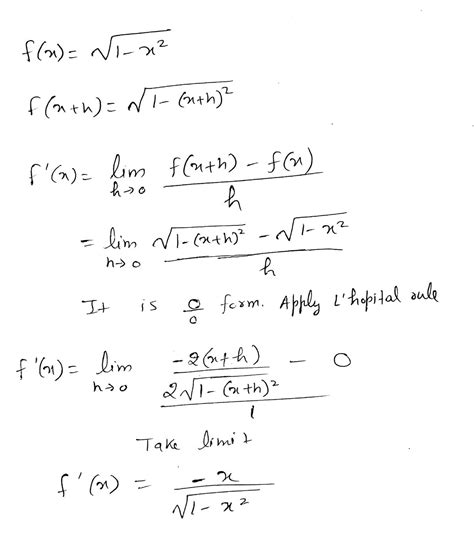 f(x) = √(1-x²)
f(x+h) = √(1-(x+h)²)
f'(x) = lim h→0 (f(x+h) - f(x))/h
= lim h→0 (√(1-(x+h)²) - √(1-x²))/h
It is 0/0 form. Apply L'hopital rule
f'(x) = lim h→0 (-2(x+h)/(2√(1-(x+h)²)) - 0)/1
Take limit
f'(x) = -x/√(1-x²)